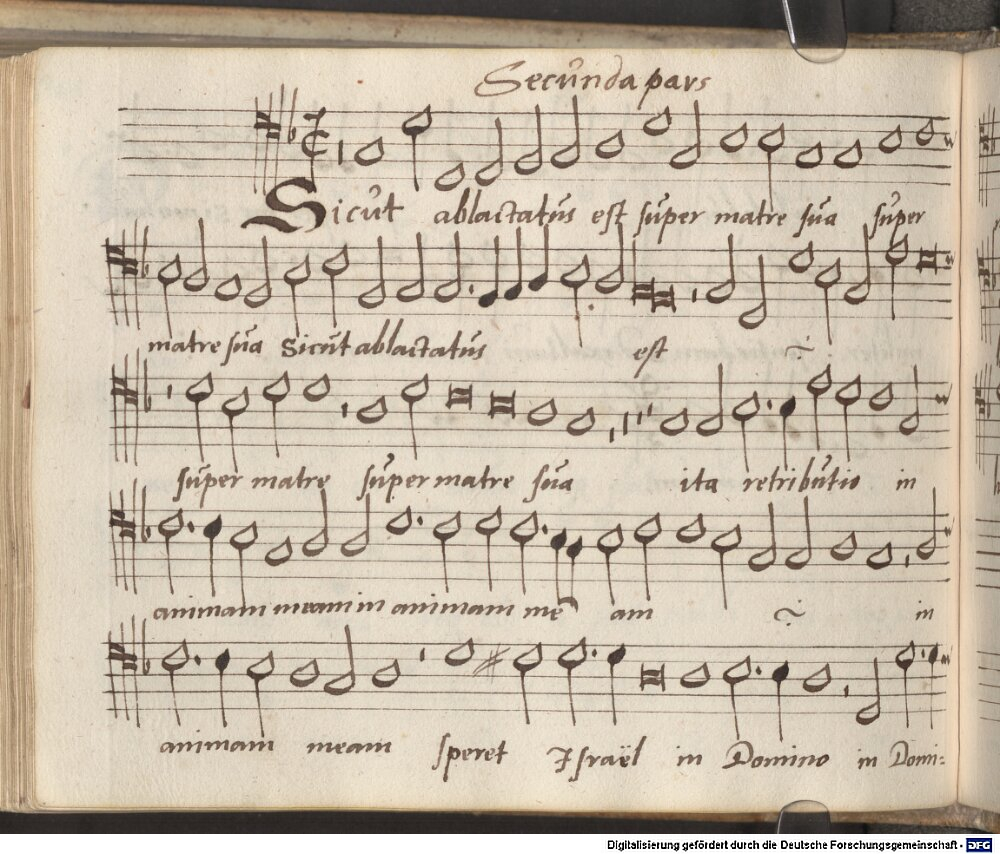 Secunda pars
Sicut ablactatus est super matre sua super
matre sua Sicut ablactatus est
super matre super matre sua ita retributio in
animam meam in animam me am in
animam meam speret Israël in Domino in Domi=
Digitalisierung gefördert durch die Deutsche Forschungsgemeinschaft - DFG